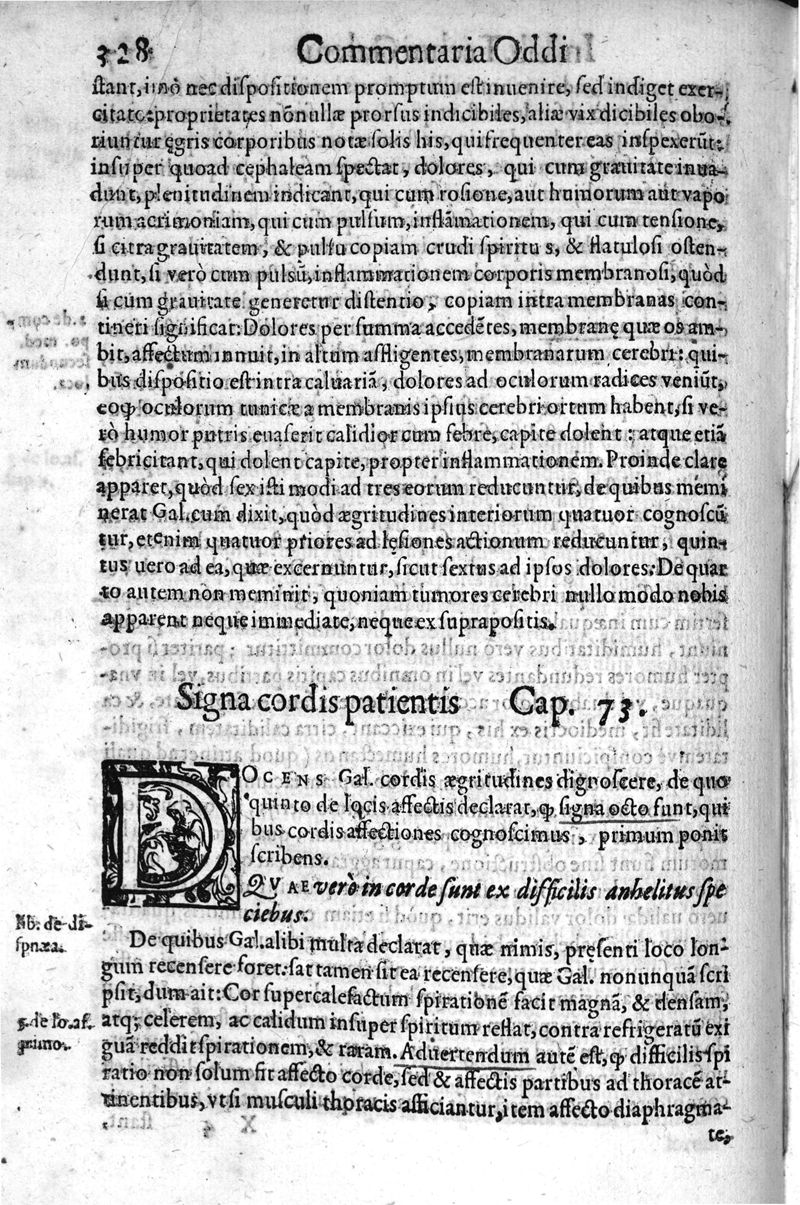 328 Commentaria Oddi
stant, imò nec dispositionem promptum est inuenire, sed indiget exer-
citato: proprietates nõnullæ prorsus indicibiles, aliæ vix dicibiles obo-
riuntur ęgris corporibus notæ solis his, qui frequenter eas inspexerũt:
insuper quoad cephaleam spectat, dolores, qui cum grauitate inua-
dunt, plenitudinem indicant, qui cum rosione, aut humorum aut vapo
rum acrimoniam, qui cum pulsum, inflãmationem, qui cum tensione,
si citra grauitatem, & pulsu copiam crudi spiritus, & flatulosi osten-
dunt, si verò cum pulsũ, inflammationem corporis membranosi, quòd
si cum grauitate generetur distentio, copiam intra membranas con-
2. de com-
po. med.
secundum
loca.
tineri significat: Dolores per summa accedẽtes, membranę quæ os am-
bit, affectum innuit, in altum affligentes, membranarum cerebri: qui-
bus dispositio est intra caluariã, dolores ad oculorum radices veniũt,
eoq; oculorum tunicæ a membranis ipsius cerebri ortum habent, si ve-
rò humor putris euaserit calidior cum febre, capite dolent: atque etiã
febricitant, qui dolent capite, propter inflammationem. Proinde clare
apparet, quòd sex isti modi ad tres eorum reducuntur, de quibus memi
nerat Gal. cum dixit, quòd ægritudines interiorum quatuor cognoscũ
tur, etenim quatuor priores ad lęsiones actionum reducuntur, quin-
tus uero ad ea, quæ excernuntur, sicut sextus ad ipsos dolores. De quar
to autem non meminit, quoniam tumores cerebri nullo modo nobis
apparent neque immediate, neque ex suprapositis.
Signa cordis patientis Cap. 73.
DOCENS Gal. cordis ægritudines dignoscere, de quo
quinto de locis affectis declarat, ꝙ signa octo sunt, qui
bus cordis affectiones cognoscimus, primum ponit
scribens.
QVAE verò in corde sunt ex difficilis anhelitus spe
ciebus.
lib. de di-
spnæa.
De quibus Gal. alibi multa declarat, quæ nimis, pręsenti loco lon-
gum recensere foret: sat tamen sit ea recensere, quæ Gal. nonunquã scri
psit, dum ait: Cor supercalefactum spirationẽ facit magnã, & densam,
5. de lo. af.
primo.
atq; celerem, ac calidum insuper spiritum reflat, contra refrigeratũ exi
guã reddit spirationem, & raram. Aduertendum autẽ est, ꝙ difficilis spi
ratio non solum fit affecto corde, sed & affectis partibus ad thoracẽ at-
tinentibus, vt si musculi thoracis afficiantur, item affecto diaphragma-
te,